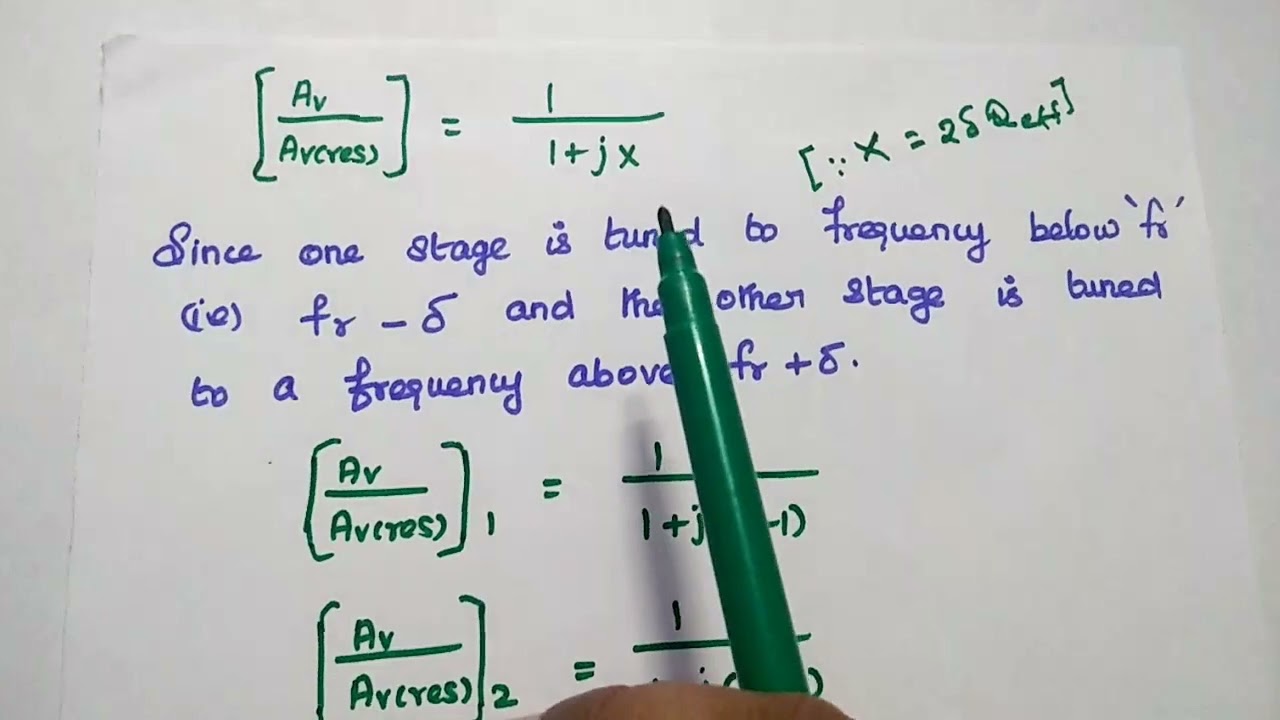 [Av/Av(res)] = 1/(1+jx) [∵ X = 2δQeff]
Since one stage is tuned to frequency below 'fr'
(ie) fr - δ and the other stage is tuned
to a frequency above fr + δ.
[Av/Av(res)]1 = 1/(1+j -1)
[Av/Av(res)]2 = 1